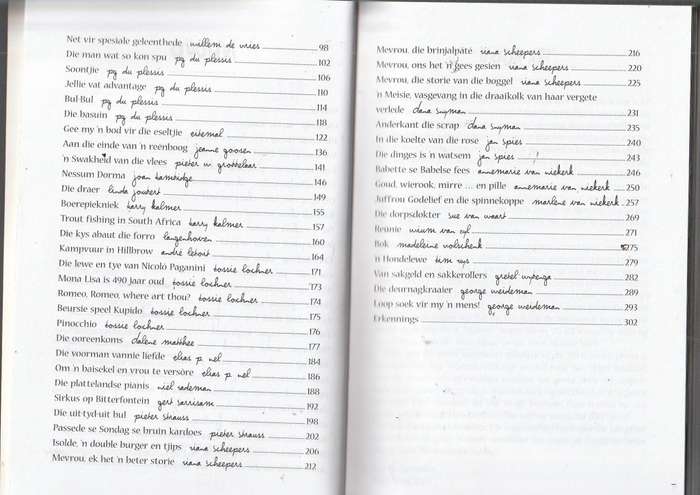 Net vir spesiale geleenthede willem de vries 98
Die man wat so kon spu pg du plessis 102
Soontjie pg du plessis 106
Jellie vat advantage pg du plessis 110
Bul-Bul pg du plessis 114
Die basuin pg du plessis 118
Gee my 'n bod vir die eseltjie eitemal 122
Aan die einde van 'n reënboog jeanne goosen 136
'n Swakheid van die vlees pieter w. grobbelaar 141
Nessum Dorma joan hambidge 146
Die draer linda joubert 149
Boerepiekniek harry kalmer 155
Trout fishing in South Africa harry kalmer 157
Die kys abaut die forro langenhoven 160
Kampvuur in Hillbrow andré letoit 164
Die lewe en tye van Nicolò Paganini tossie lochner 171
Mona Lisa is 490 jaar oud tossie lochner 173
Romeo, Romeo, where art thou? tossie lochner 174
Beursie speel Kupido tossie lochner 175
Pinocchio tossie lochner 176
Die ooreenkoms dalene matthee 177
Die voorman vannie liefde elias p. nel 184
Om 'n baisekel en vrou te versôre elias p. nel 186
Die plattelandse pianis niel rademan 188
Sirkus op Bitterfontein gert sarrisam 192
Die uit-tyd-uit bul pieter strauss 198
Passede se Sondag se bruin kardoes pieter strauss 202
Isolde, 'n double burger en tjips riana scheepers 206
Mevrou, ek het 'n beter storie riana scheepers 212
Mevrou, die brinjalpaté riana scheepers 216
Mevrou, ons het 'n gees gesien riana scheepers 220
Mevrou, die storie van die boggel riana scheepers 225
'n Meisie, vasgevang in die draaikolk van haar vergete
verlede dana snyman 231
Anderkant die scrap dana snyman 235
In die koelte van die rose jan spies 240
Die dinges is 'n watsem jan spies 243
Babette se Babelse fees annemarie van niekerk 246
Goud, wierook, mirre ... en pille annemarie van niekerk 250
Juffrou Godelief en die spinnekoppe marlene van niekerk 257
Die dorpsdokter sue van waart 269
Reünie 271
Bok madeleine volschenk 275
'n Hondelewe tim 279
Van sakgeld en sakkerollers gretel wybenga 282
Die deurnagkraaier george weideman 289
Loop soek vir my 'n mens! george weideman 293
Erkennings 302